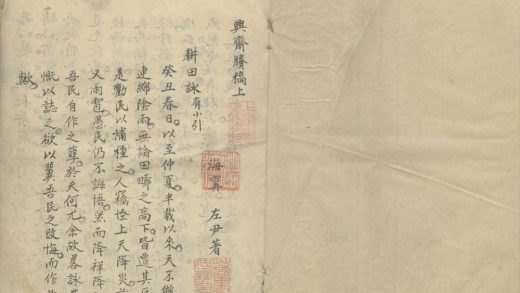 興齋賸稿上
海寧 左尹著
耕田詠有小引
癸丑春日以至仲夏半載以來天不
連綿陰雨無論田疇之高下皆遭其
是勸民以補種之人竊怪上天降災
又雨雹愚民仍不誨悟然而降祥降
吾民自作之孽於天何尤余故畧詠其
慨以誌之欲以冀吾民之改悔而作
歟